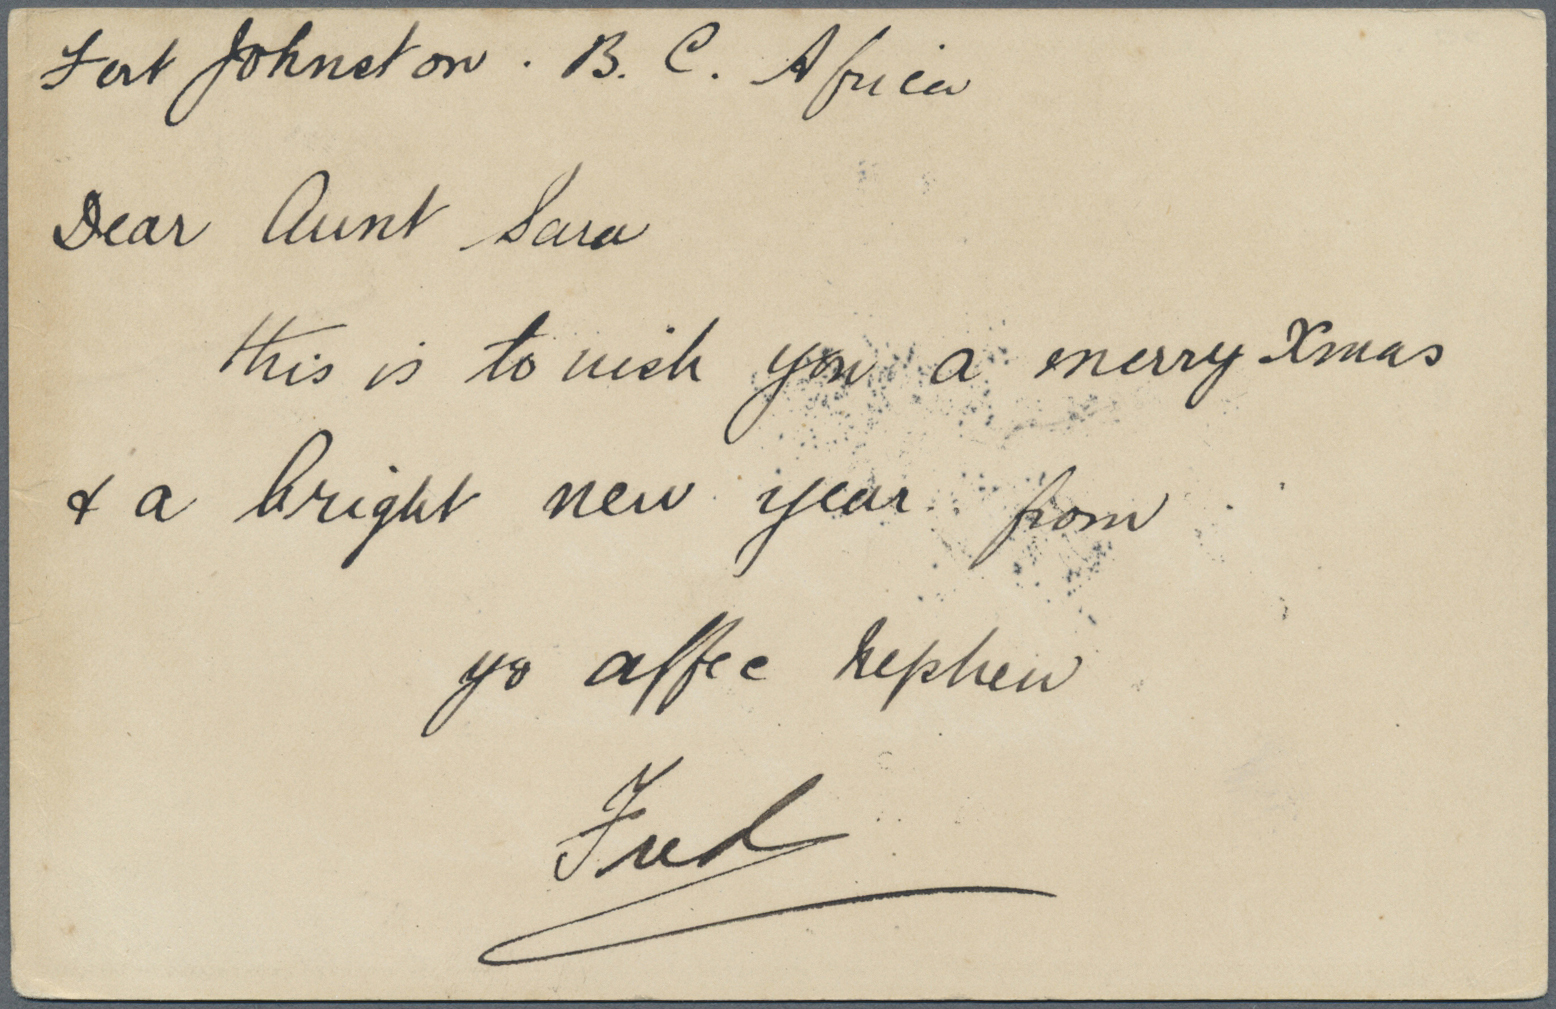 Fort Johnston. B. C. Africa
Dear Aunt Sara
this is to wish you a merry Xmas
& a bright new year from
yr affec nephew
Fred